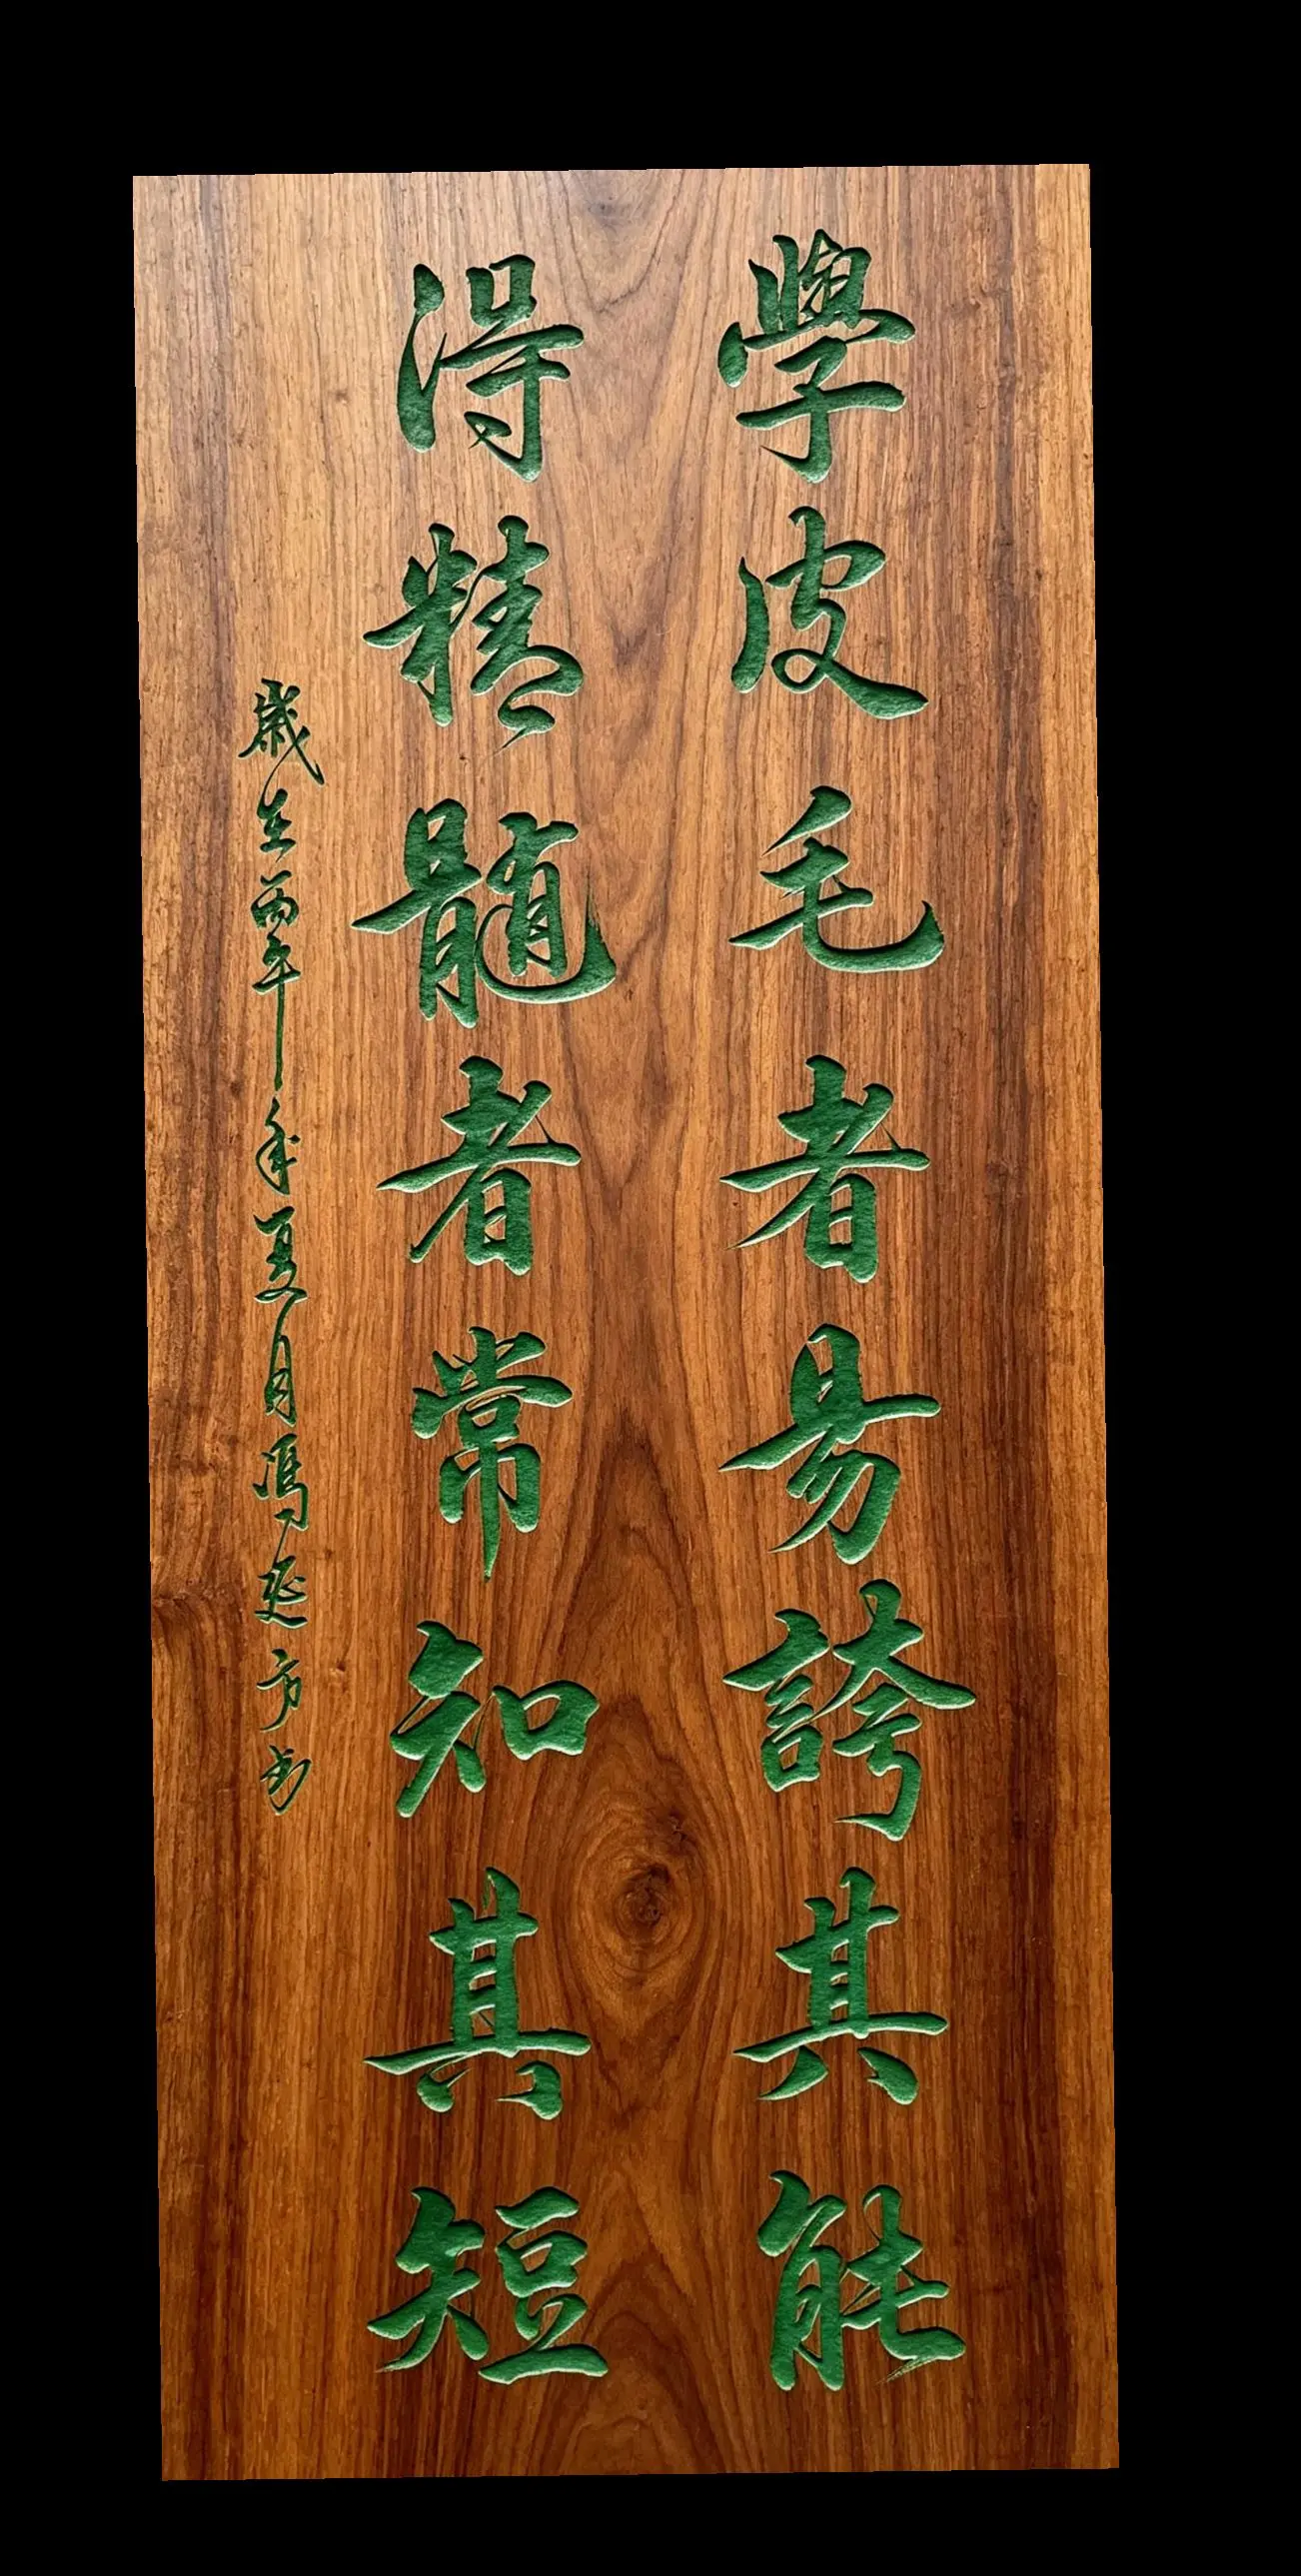 學皮毛者易誇其能
得精髓者常知其短
歲在丙午年夏月馮延方书